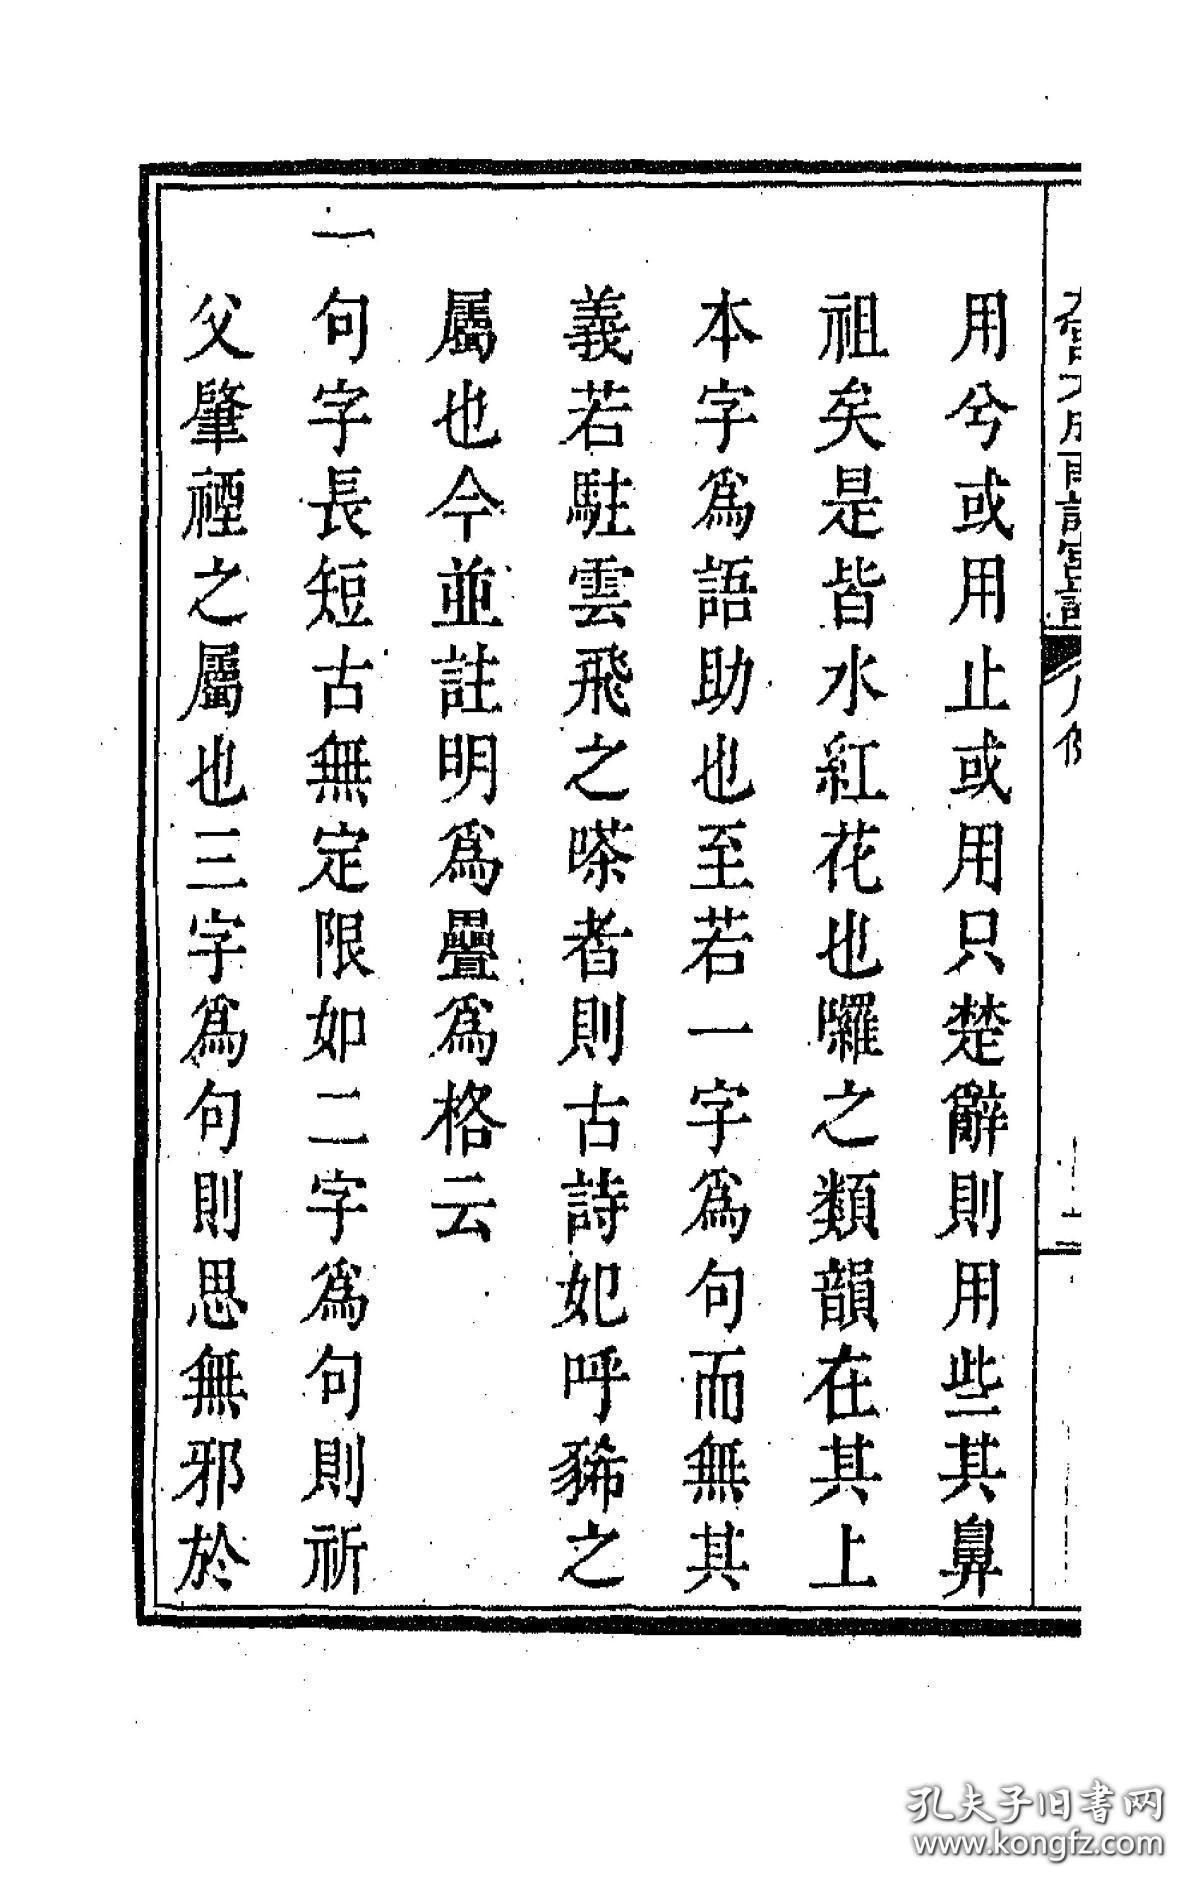 用兮或用止或用只楚辭則用些其鼻
祖矣是皆水紅花也囉之類韻在其上
本字爲語助也至若一字爲句而無其
義若駐雲飛之嗏者則古詩妃呼豨之
屬也今並註明爲疊爲格云
一句字長短古無定限如二字爲句則祈
父肇禋之屬也三字爲句則思無邪於
孔夫子旧書网
www.kongfz.com